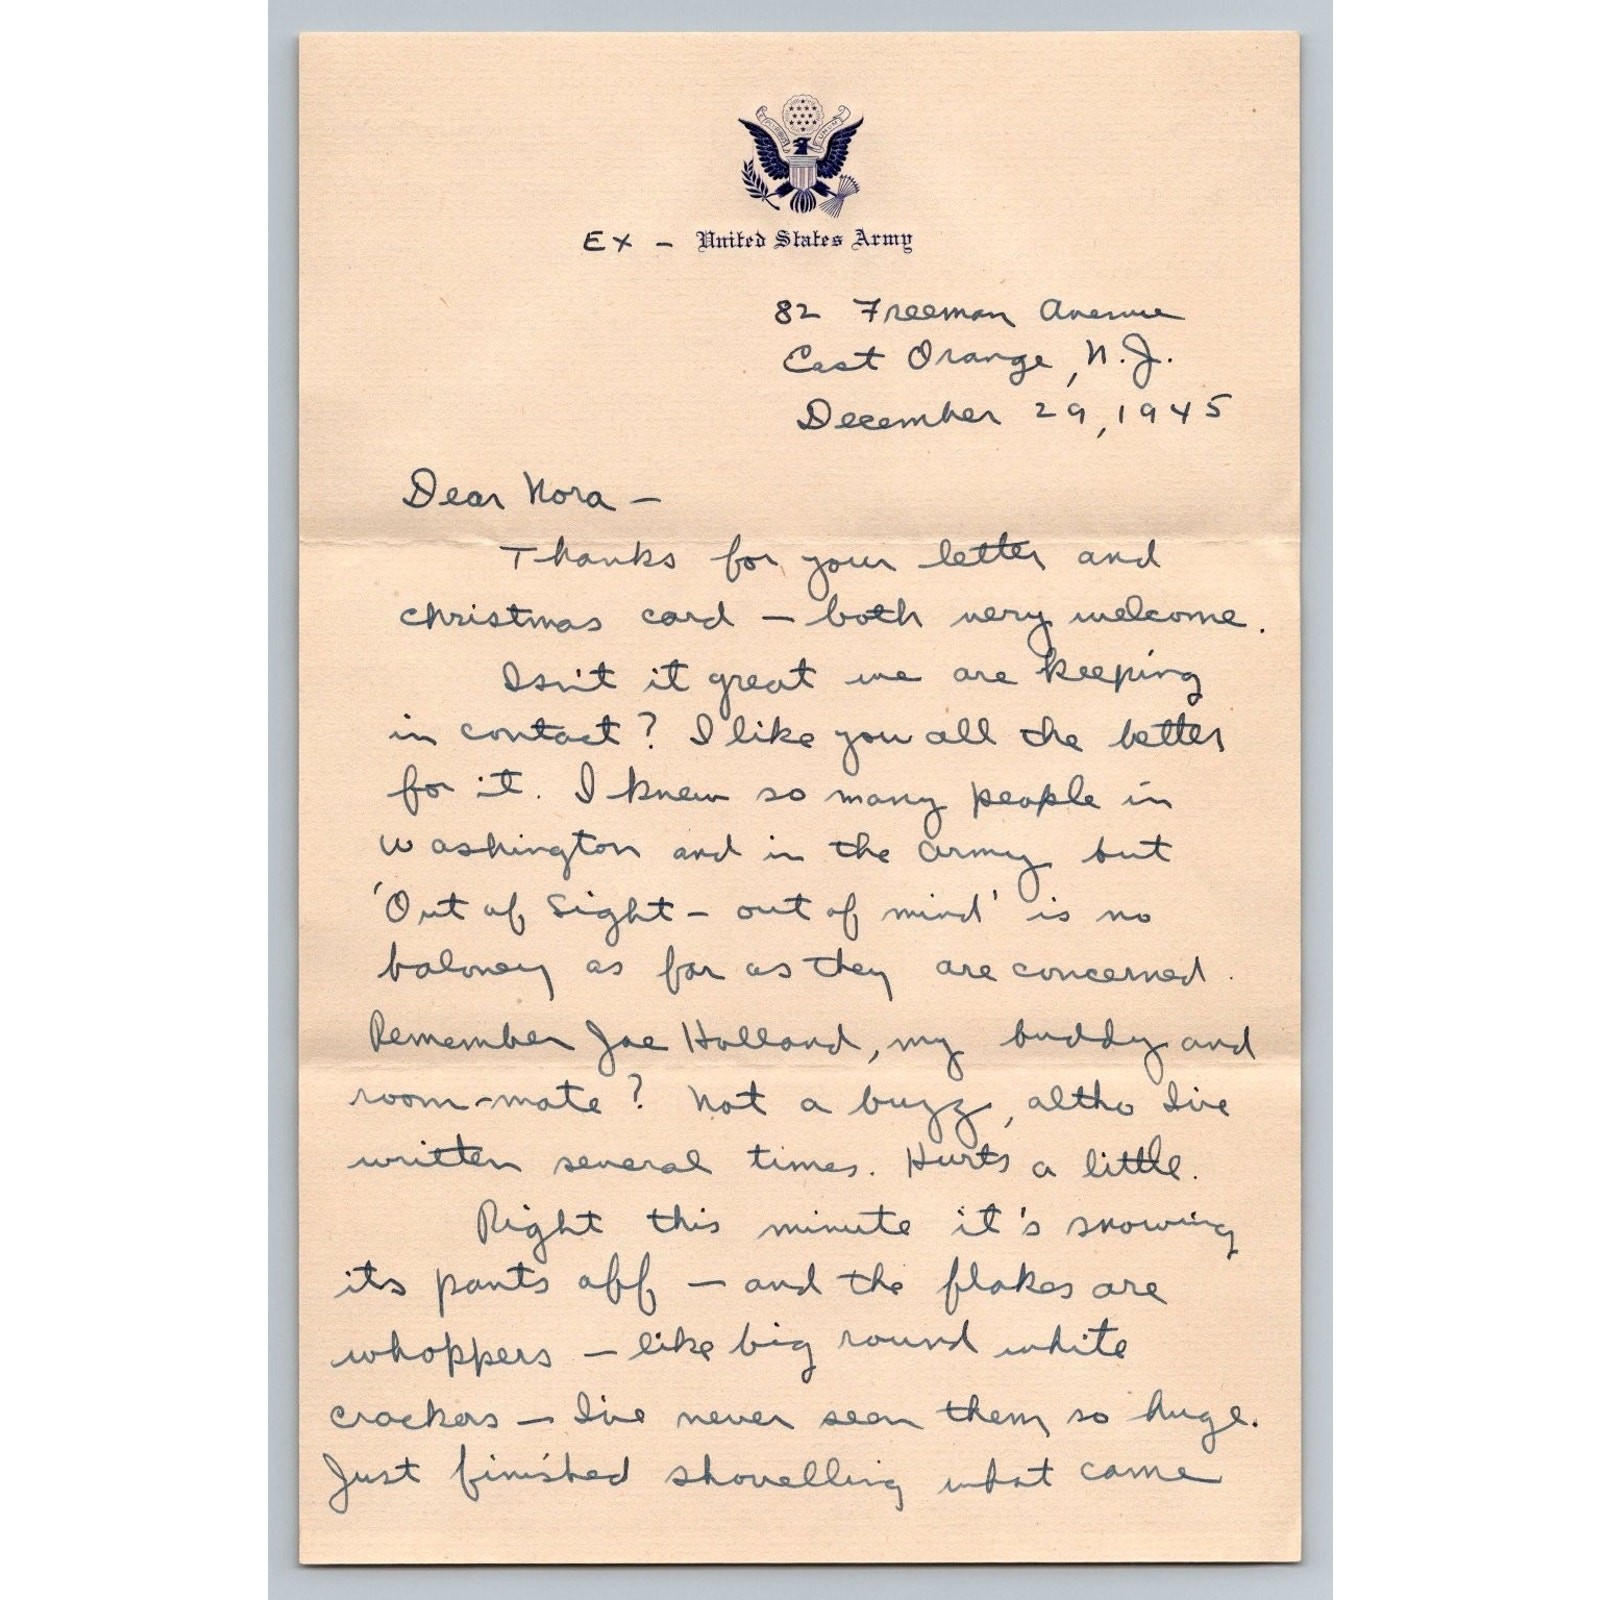 E PLURIBUS UNUM
Ex - United States Army
82 Freeman Avenue
East Orange, N.J.
December 29, 1945
Dear Nora —
Thanks for your letter and
christmas card — both very welcome.
Isn't it great we are keeping
in contact? I like you all the better
for it. I knew so many people in
Washington and in the army but
'Out of Sight - out of mind' is no
baloney as far as they are concerned.
Remember Joe Holland, my buddy and
room-mate? Not a buzz, altho I've
written several times. Hurts a little.
Right this minute it's snowing
its pants off — and the flakes are
whoppers — like big round white
crackers — I've never seen them so huge.
Just finished shovelling what came